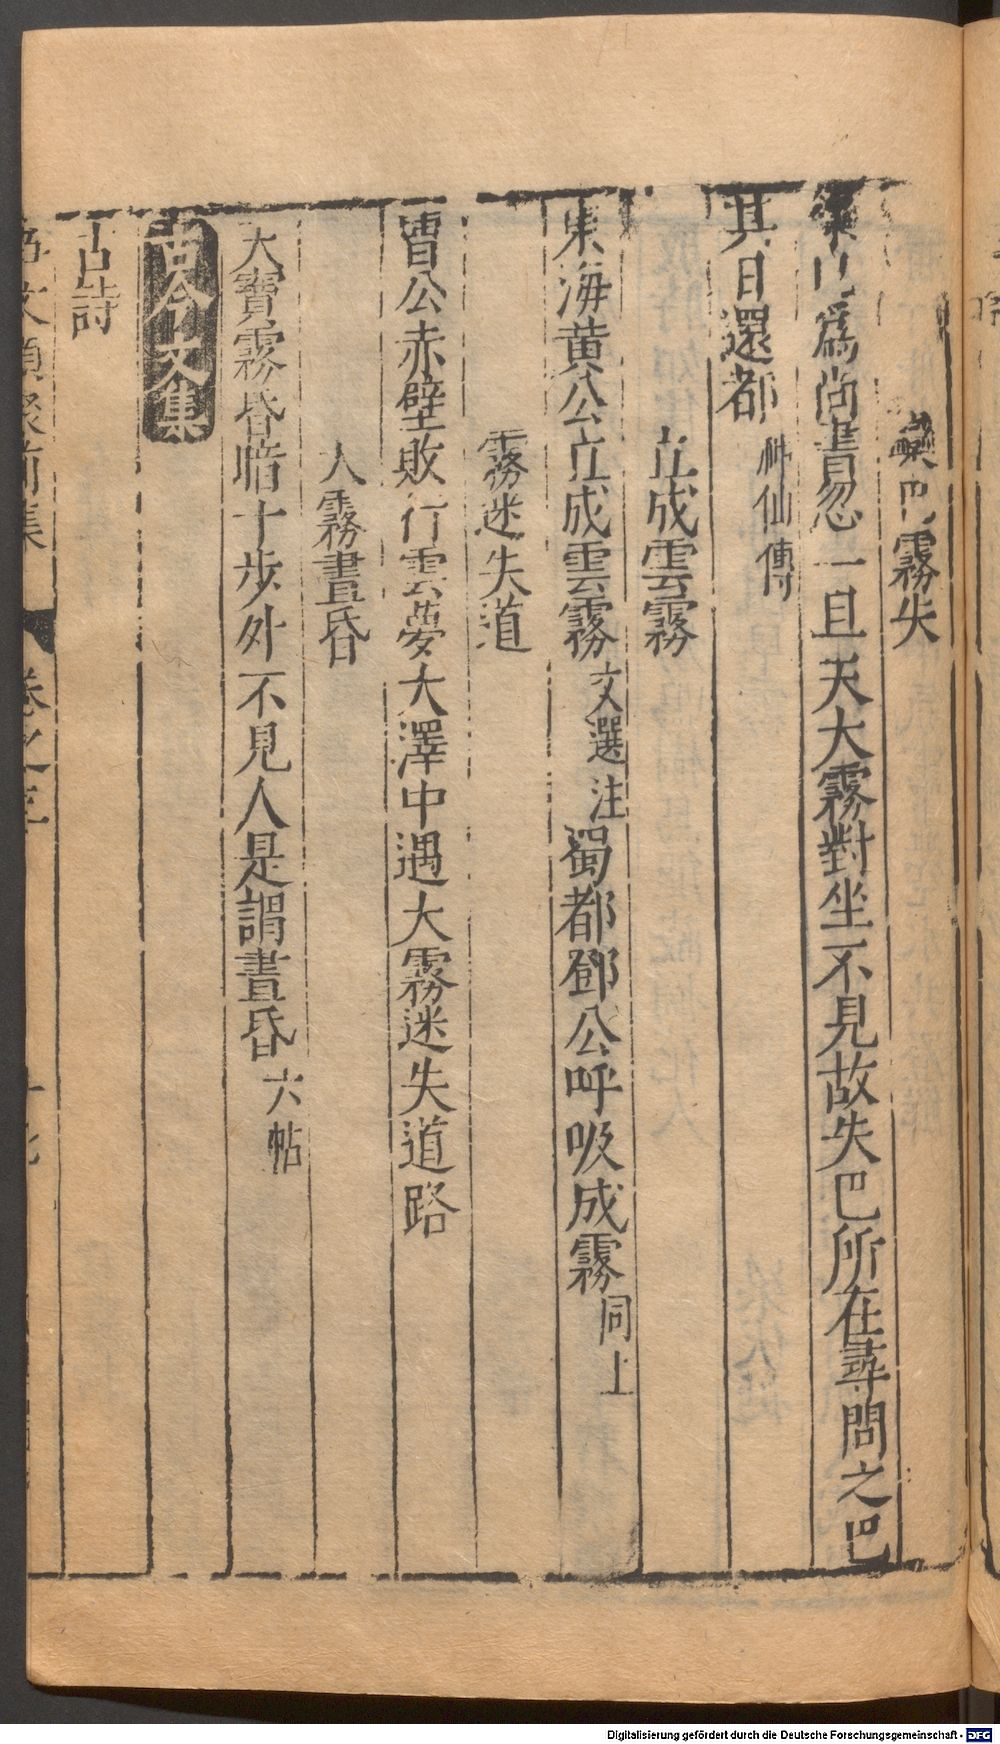 欒巴霧失
欒巴為尚書忽一旦天大霧對坐不見故失巴所在尋問之巴
其日還都 神仙傳
立成雲霧
東海黄公立成雲霧 文選注 蜀都鄧公呼吸成霧 同上
霧迷失道
曹公赤壁敗行雲夢大澤中遇大霧迷失道路
人霧晝昏
大寶霧昏暗十步外不見人是謂晝昏 六帖
古今文集
古詩
事文類聚前集 卷之三
Digitalisierung gefördert durch die Deutsche Forschungsgemeinschaft - DFG